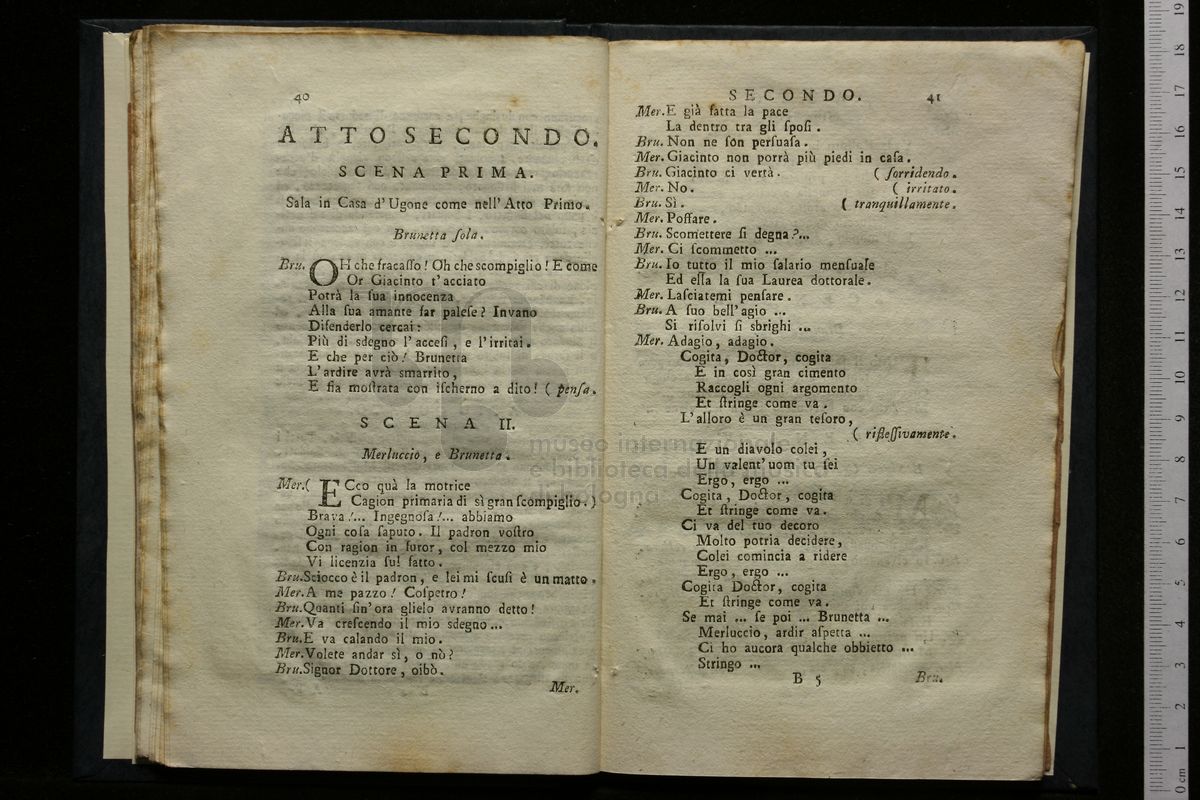 40
ATTO SECONDO.
SCENA PRIMA.
Sala in Casa d'Ugone come nell'Atto Primo.
Brunetta ſola.
Bru. OH che fracaſſo! Oh che scompiglio! E come
Or Giacinto t'acciato
Potrà la ſua innocenza
Alla ſua amante far paleſe? Invano
Difenderlo cercai:
Più di sdegno l'acceſi, e l'irritai.
E che per ciò! Brunetta
L'ardire avrà smarrito,
E ſia moſtrata con iſcherno a dito! ( penſa.
SCENA II.
Merluccio, e Brunetta.
Mer.( ECco quà la motrice
Cagion primaria di sì gran ſcompiglio.)
Brava!... Ingegnoſa!... abbiamo
Ogni coſa ſaputo. Il padron voſtro
Con ragion in furor, col mezzo mio
Vi licenzia ful fatto.
Bru.Sciocco è il padron, e lei mi ſcuſi è un matto.
Mer.A me pazzo! Coſpetro!
Bru.Quanti ſin'ora glielo avranno detto!
Mer.Va creſcendo il mio sdegno...
Bru.E va calando il mio.
Mer.Volete andar sì, o nò?
Bru.Signor Dottore, oibò.
Mer.
SECONDO. 41
Mer.E già fatta la pace
La dentro tra gli ſpoſi.
Bru. Non ne ſon perſuaſa.
Mer.Giacinto non porrà più piedi in caſa.
Bru. Giacinto ci vertà. ( ſorridendo.
Mer. No. ( irritato.
Bru. Sì. ( tranquillamente.
Mer. Poſſare.
Bru. Scomettere ſi degna?...
Mer. Ci ſcommetto ...
Bru. Io tutto il mio ſalario menſuale
Ed eſſa la ſua Laurea dottorale.
Mer. Laſciatemi penſare.
Bru. A ſuo bell'agio ...
Si riſolvi ſi sbrighi ...
Mer. Adagio, adagio.
Cogita, Doctor, cogita
E in così gran cimento
Raccogli ogni argomento
Et ſtringe come va.
L'alloro è un gran teſoro,
( rifleſſivamente.
E un diavolo colei,
Un valent'uom tu ſei
Ergo, ergo ...
Cogita, Doctor, cogita
Et ſtringe come va.
Ci va del tuo decoro
Molto potria decidere,
Colei comincia a ridere
Ergo, ergo ...
Cogita Doctor, cogita
Et ſtringe come va.
Se mai ... ſe poi ... Brunetta ...
Merluccio, ardir aſpetta ...
Ci ho aucora qualche obbietto ...
Stringo ...
B 5 Bru.
museo internazionale
e biblioteca della musica
di bologna
0 cm 1 2 3 4 5 6 7 8 9 10 11 12 13 14 15 16 17 18 19